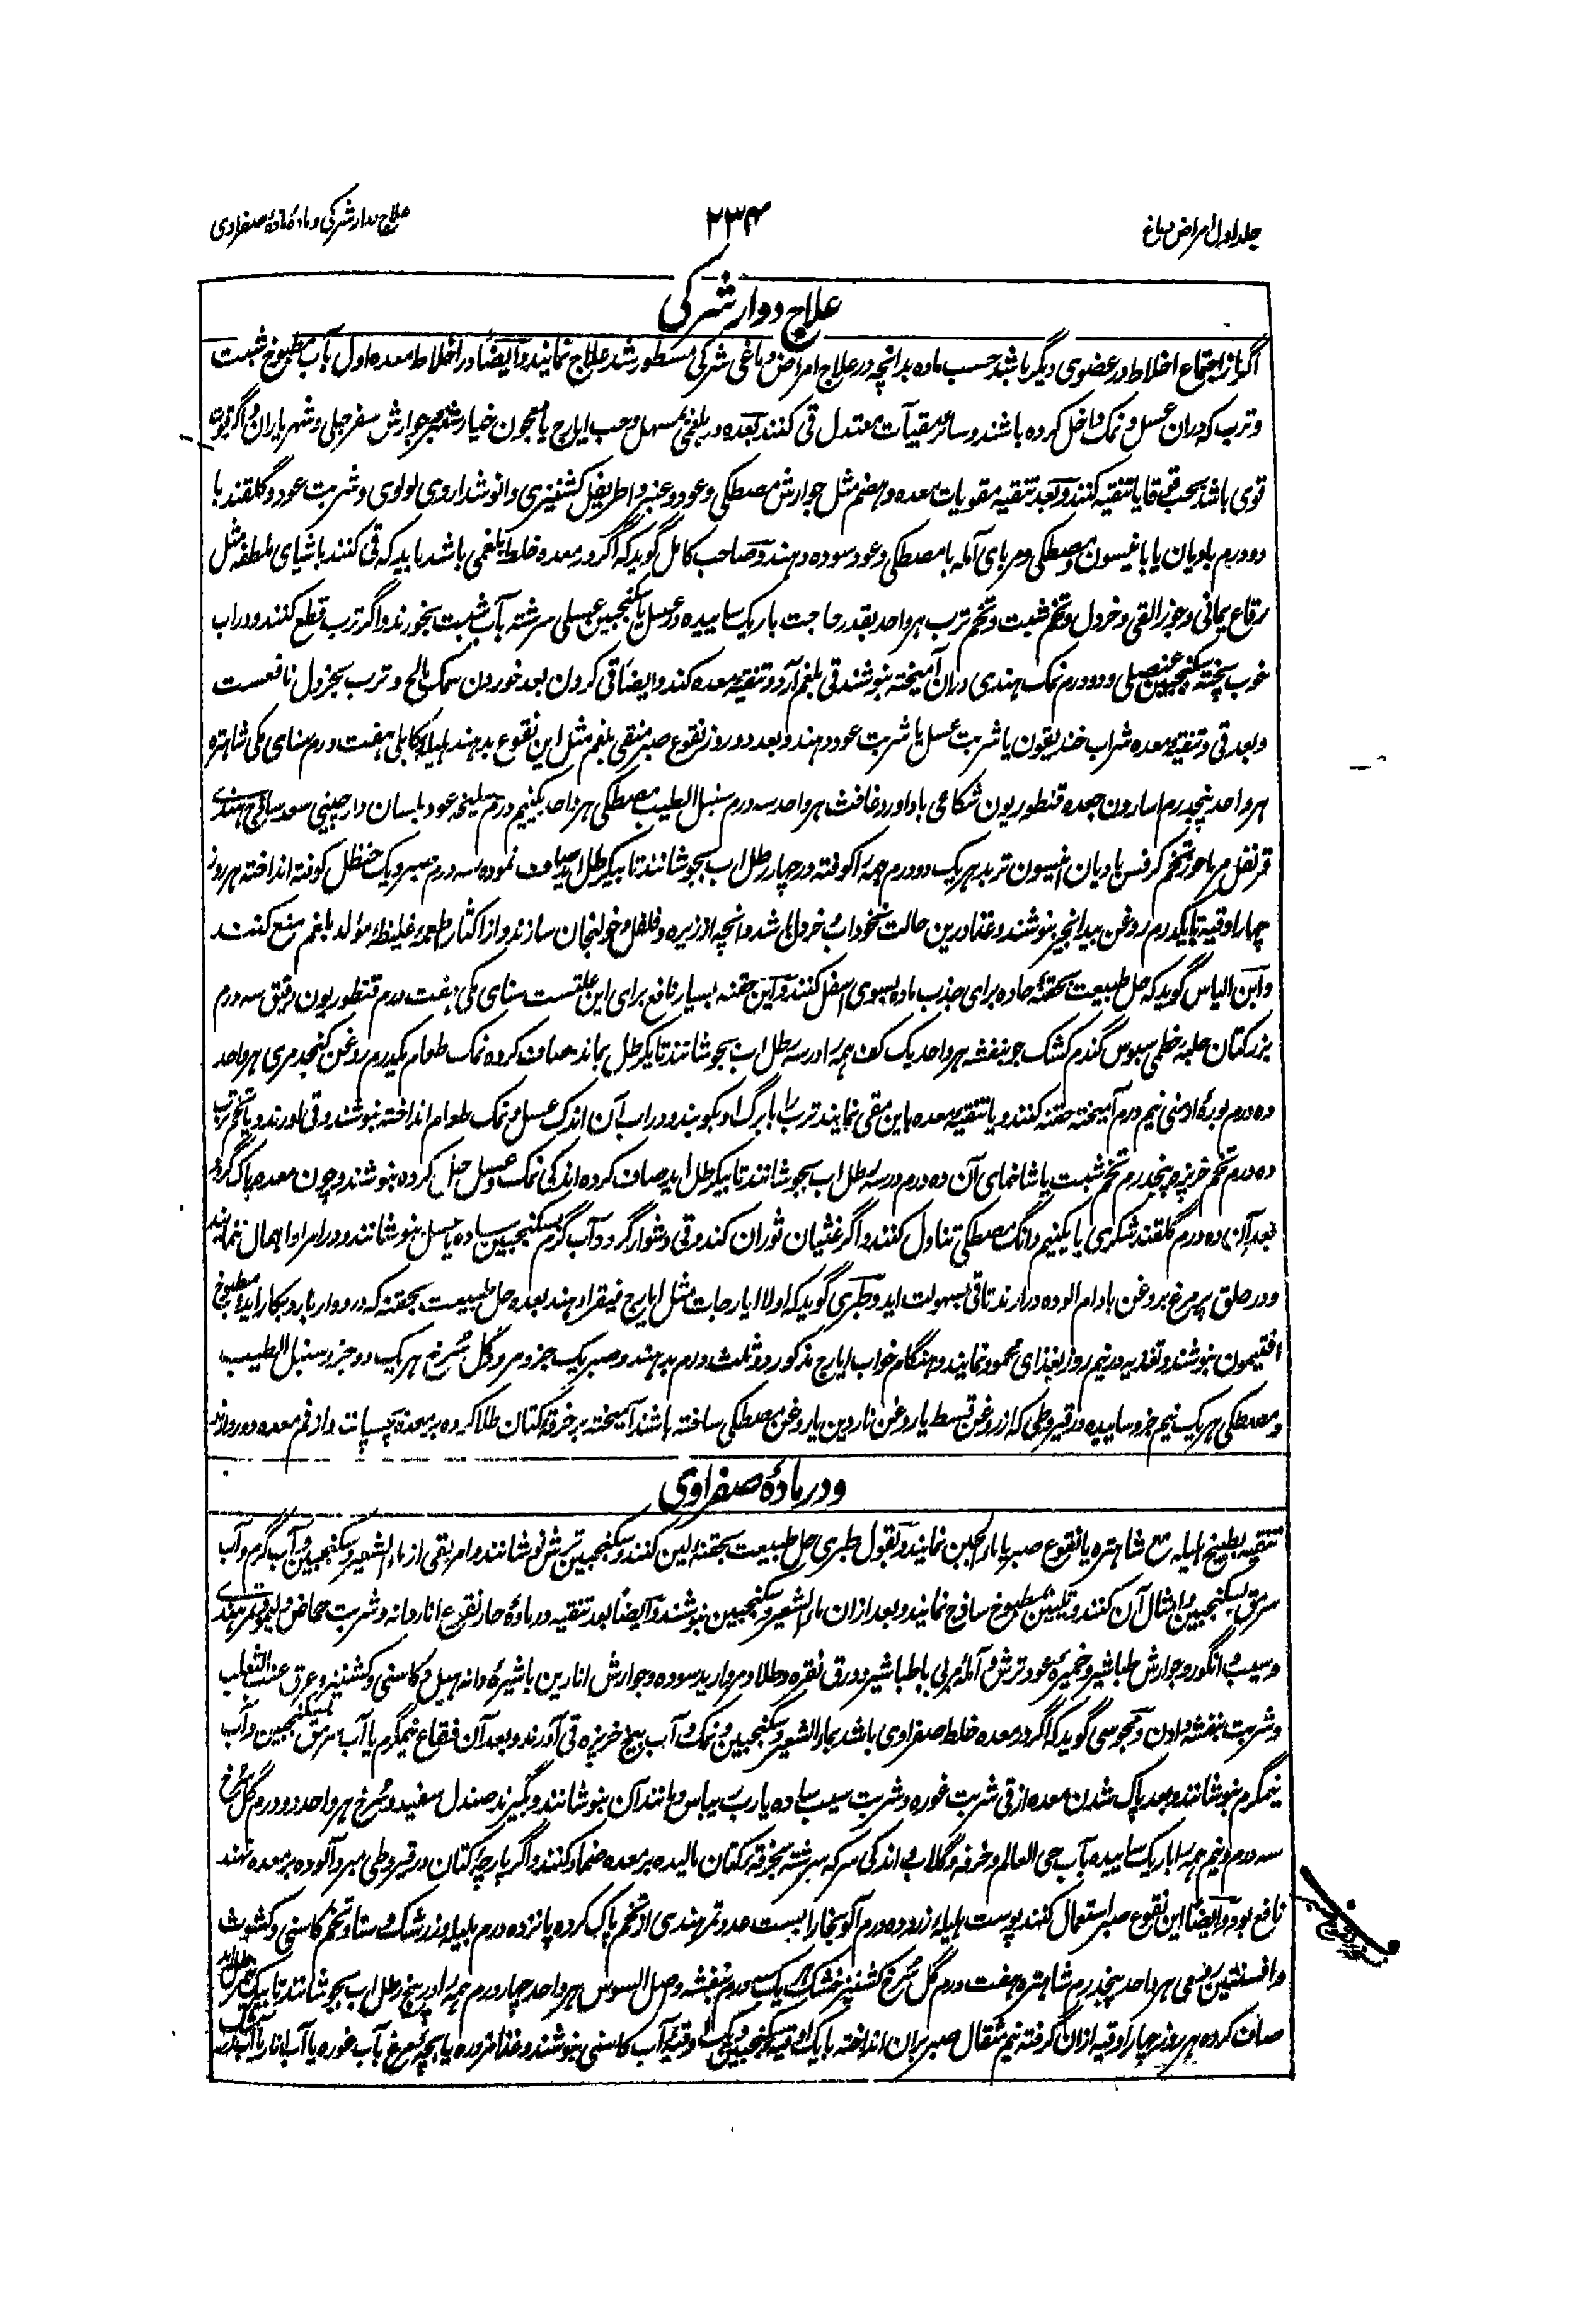 جلد اول امراض دماغ
۲۳۴
علاج دوار شرکی و مادۀ صفراوی
علاج دوار شرکی
اگر از اجتماع اخلاط در عضوی دیگر باشد حسب ماده بدانچه در علاج امراض دماغی شرکی مسطور شد علاج نمایند و ایضاً در اخلاط معده اول بآب مطبوخ شبت
و ترب که دران عسل و نمک داخل کرده باشند و سائر مقیآت معتدل قی کنند بعده در بلغمی بمسهل و حب ایارج یا معجون خیارشنبر جوارش سفرجلی و شهریاران و اگر قوت
قوی باشد بحب قوقایا تنقیه کنند و بعد تنقیه مقویات معده و هضم مثل جوارش مصطکی و عود و عنبر و اطریفل کشنیزی و انوشداروی لولوی و شربت عود و گلقند با
دو درم بادیان یا با انیسون و مصطکی و مربای آمله با مصطکی و عود سوده دهند و صاحب کامل گوید که اگر در معده خلط بلغمی باشد باید که قی کنند باشیای ملطفه مثل
رقاع یمانی و جوز القی و خردل و تخم شبت و تخم ترب هر واحد بقدر حاجت باریک ساییده و عسل یا سکنجبین عسلی سرشته بآب شبت بخورند و اگر ترب قطع کنند و در آب
خوب پخته سکنجبین عنصلی و دو درم نمک هندی دران آمیخته بنوشند قی بلغم آرد و تنقیه معده کند و ایضاً قی کردن بعد خوردن سمک مالح و ترب بخردل نافعست
و بعد قی و تنقیه معده شراب خندیقون یا شربت عسل یا شربت عود دهند و بعد دو روز نقوع صبر منقی بلغم مثل این نقوع بدهند هلیله کابلی هفت درم سنای مکی شاهتره
هر واحد پنجدرم اسارون جعده قنطوریون شکاعی باداورد غافث هر واحد سه درم سنبل الطیب مصطکی هر واحد یکنیم درم سلیخه عود بلسان دارچینی سعد ساذج هندی
قرنفل مرماحوز تخم کرفس بادیان انیسون تربد هر یک دو درم همه را کوفته در چهار رطل آب بجوشانند تا بیکرطل آید صاف نموده سه درم صبر و یک حنظل کوفته انداخته هر روز
چهار اوقیه با یکدرم روغن بیدانجیر بنوشند و غذا درین حالت نخوداب خردل باشد و آنچه از زیره و فلفل و خولنجان سازند و از اکثار طعمه غلیظه مولد بلغم منع کنند
و ابن الیاس گوید که حل طبیعت بحقنه حاده برای جذب ماده بسوی اسفل کنند و این حقنه بسیار نافع برای این علتست سنای مکی هفت درم قنطوریون رقیق سه درم
بزر کتان حلبه خطمی سبوس گندم کشک جو بنفشه هر واحد یک کف همه را در سه رطل آب بجوشانند تا یکرطل بماند صاف کرده نمک طعام یکدرم روغن کنجد مری هر واحد
ده درم بورۀ ارمنی نیم درم آمیخته حقنه کنند و یا تنقیه معده باین مقی نمایند ترب را با برگ او بکوبند و در آب آن اندک عسل و نمک طعام انداخته بنوشند و قی آورند و یا تخم ترب
ده درم تخم خربزه پنجدرم تخم شبت یا شاخهای آن ده درم در سه رطل آب بجوشانند تا بیکرطل آید صاف کرده اندکی نمک و عسل حل کرده بنوشند و چون معده پاک گردد
بعد آن ده درم گلقند شکری با یکنیم دانگ مصطکی تناول کنند و اگر غثیان ثوران کند و قی دشوار گردد آب گرم سکنجبین ساده یا عسل بنوشانند و در امر او اهمال ننمایند
و در حلق پر مرغ بروغن بادام آلوده درآرند تا قی بسهولت آید و طبری گوید که اولا ایارجات مثل ایارج فیقرا دهند بعده حل طبیعت بحقنه که در دوار بارد بکار آید و مطبوخ
افتیمون بنوشند و تغذیه در نیم روز بغذای محمود نمایند و هنگام خواب ایارج مذکور دو ثلث درم بدهند و صبر یک جزو مر و گل سرخ هر یک دو جزو سنبل الطیب
و مصطکی هر یک نیم جزو ساییده در قیروطی که از روغن قسط یا روغن ناردین یا روغن مصطکی ساخته باشند آمیخته بر خرقه کتان طلا کرده بر معده چسپانند و از فم معده دور دارند
و در مادۀ صفراوی
تنقیه بطبیخ هلیله مع شاهتره یا نقوع صبر یا ماء الجبن نمایند و بقول طبری حل طبیعت بحقنه لین کنند و سکنجبین ترش نوشانند و امر بقی از ماء الشعیر و سکنجبین و آب گرم و آب
سرمق بسکنجبین و امثال آن کنند و تلیین بمطبوخ ساذج نمایند و بعد ازان ماء الشعیر و سکنجبین بنوشند و ایضاً بعد تنقیه در مادۀ حار نقوع انار دانه و شربت حماض و لیمو و تمر هندی
و سیب و انگور و جوارش طباشیر و خمیره عود ترش و آملۀ مربی با طباشیر و ورق نقره و طلا و مروارید سوده و جوارش انارین با شیرۀ دانه هیل و کاسنی و کشنیز و عرق عنب الثعلب
و شربت بنفشه دادن و مجوسی گوید که اگر در معده خلط صفراوی باشد بماء الشعیر و سکنجبین و نمک و آب بیخ خربزه قی آورند و بعد آن فقاع نیمگرم یا آب سرمق سکنجبین و آب
نیمگرم بنوشانند و بعد پاک شدن معده از قی شربت غوره و شربت سیب ساده یا رب ریباس و مانند آن بنوشانند و بگیرند صندل سفید و سرخ هر واحد دو درم گل سرخ
سه درم و نیم همه را باریک ساییده بآب حی العالم و خرفه و گلاب و اندکی سرکه سرشته بخرقه کتان مالیده بر معده ضماد کنند و اگر پارچه کتان در قیروطی مبرد آلوده بر معده نهند
نافع بود و ایضاً این نقوع صبر استعمال کنند پوست هلیله زرد ده درم آلو بخارا بیست عدد تمر هندی از تخم پاک کرده پانزده درم بلیله و زرشک و سنا و تخم کاسنی و کشوث
و افسنتین رومی هر واحد پنجدرم شاهتره هفت درم گل سرخ کشنیز خشک هر یک سه درم بنفشه و اصل السوس هر واحد چهار درم همه را در پنج رطل آب بجوشانند تا بیک رطل آید
صاف کرده هر روز چهار اوقیه ازان گرفته نیم مثقال صبر بران انداخته با یک اوقیه سکنجبین و یک اوقیه آب کاسنی بنوشند و غذا مزوره یا بچه مرغ بآب غوره یا آب انار یا آب